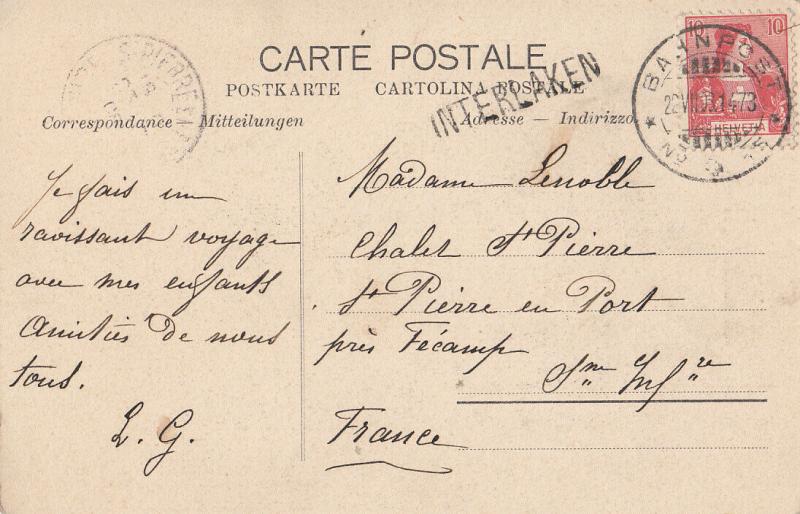 CARTE POSTALE
POSTKARTE CARTOLINA POSTALE
Correspondance — Mitteilungen
Adresse — Indirizzo
INTERLAKEN
BAHNPOST
10 10
HELVETIA
Je fais un
ravissant voyage
avec mes enfants
Amitiés de nous
tous.
L. G.
Madame Lenoble
Chalet St Pierre
St Pierre en Port
près Fécamp
Sne Infre
France